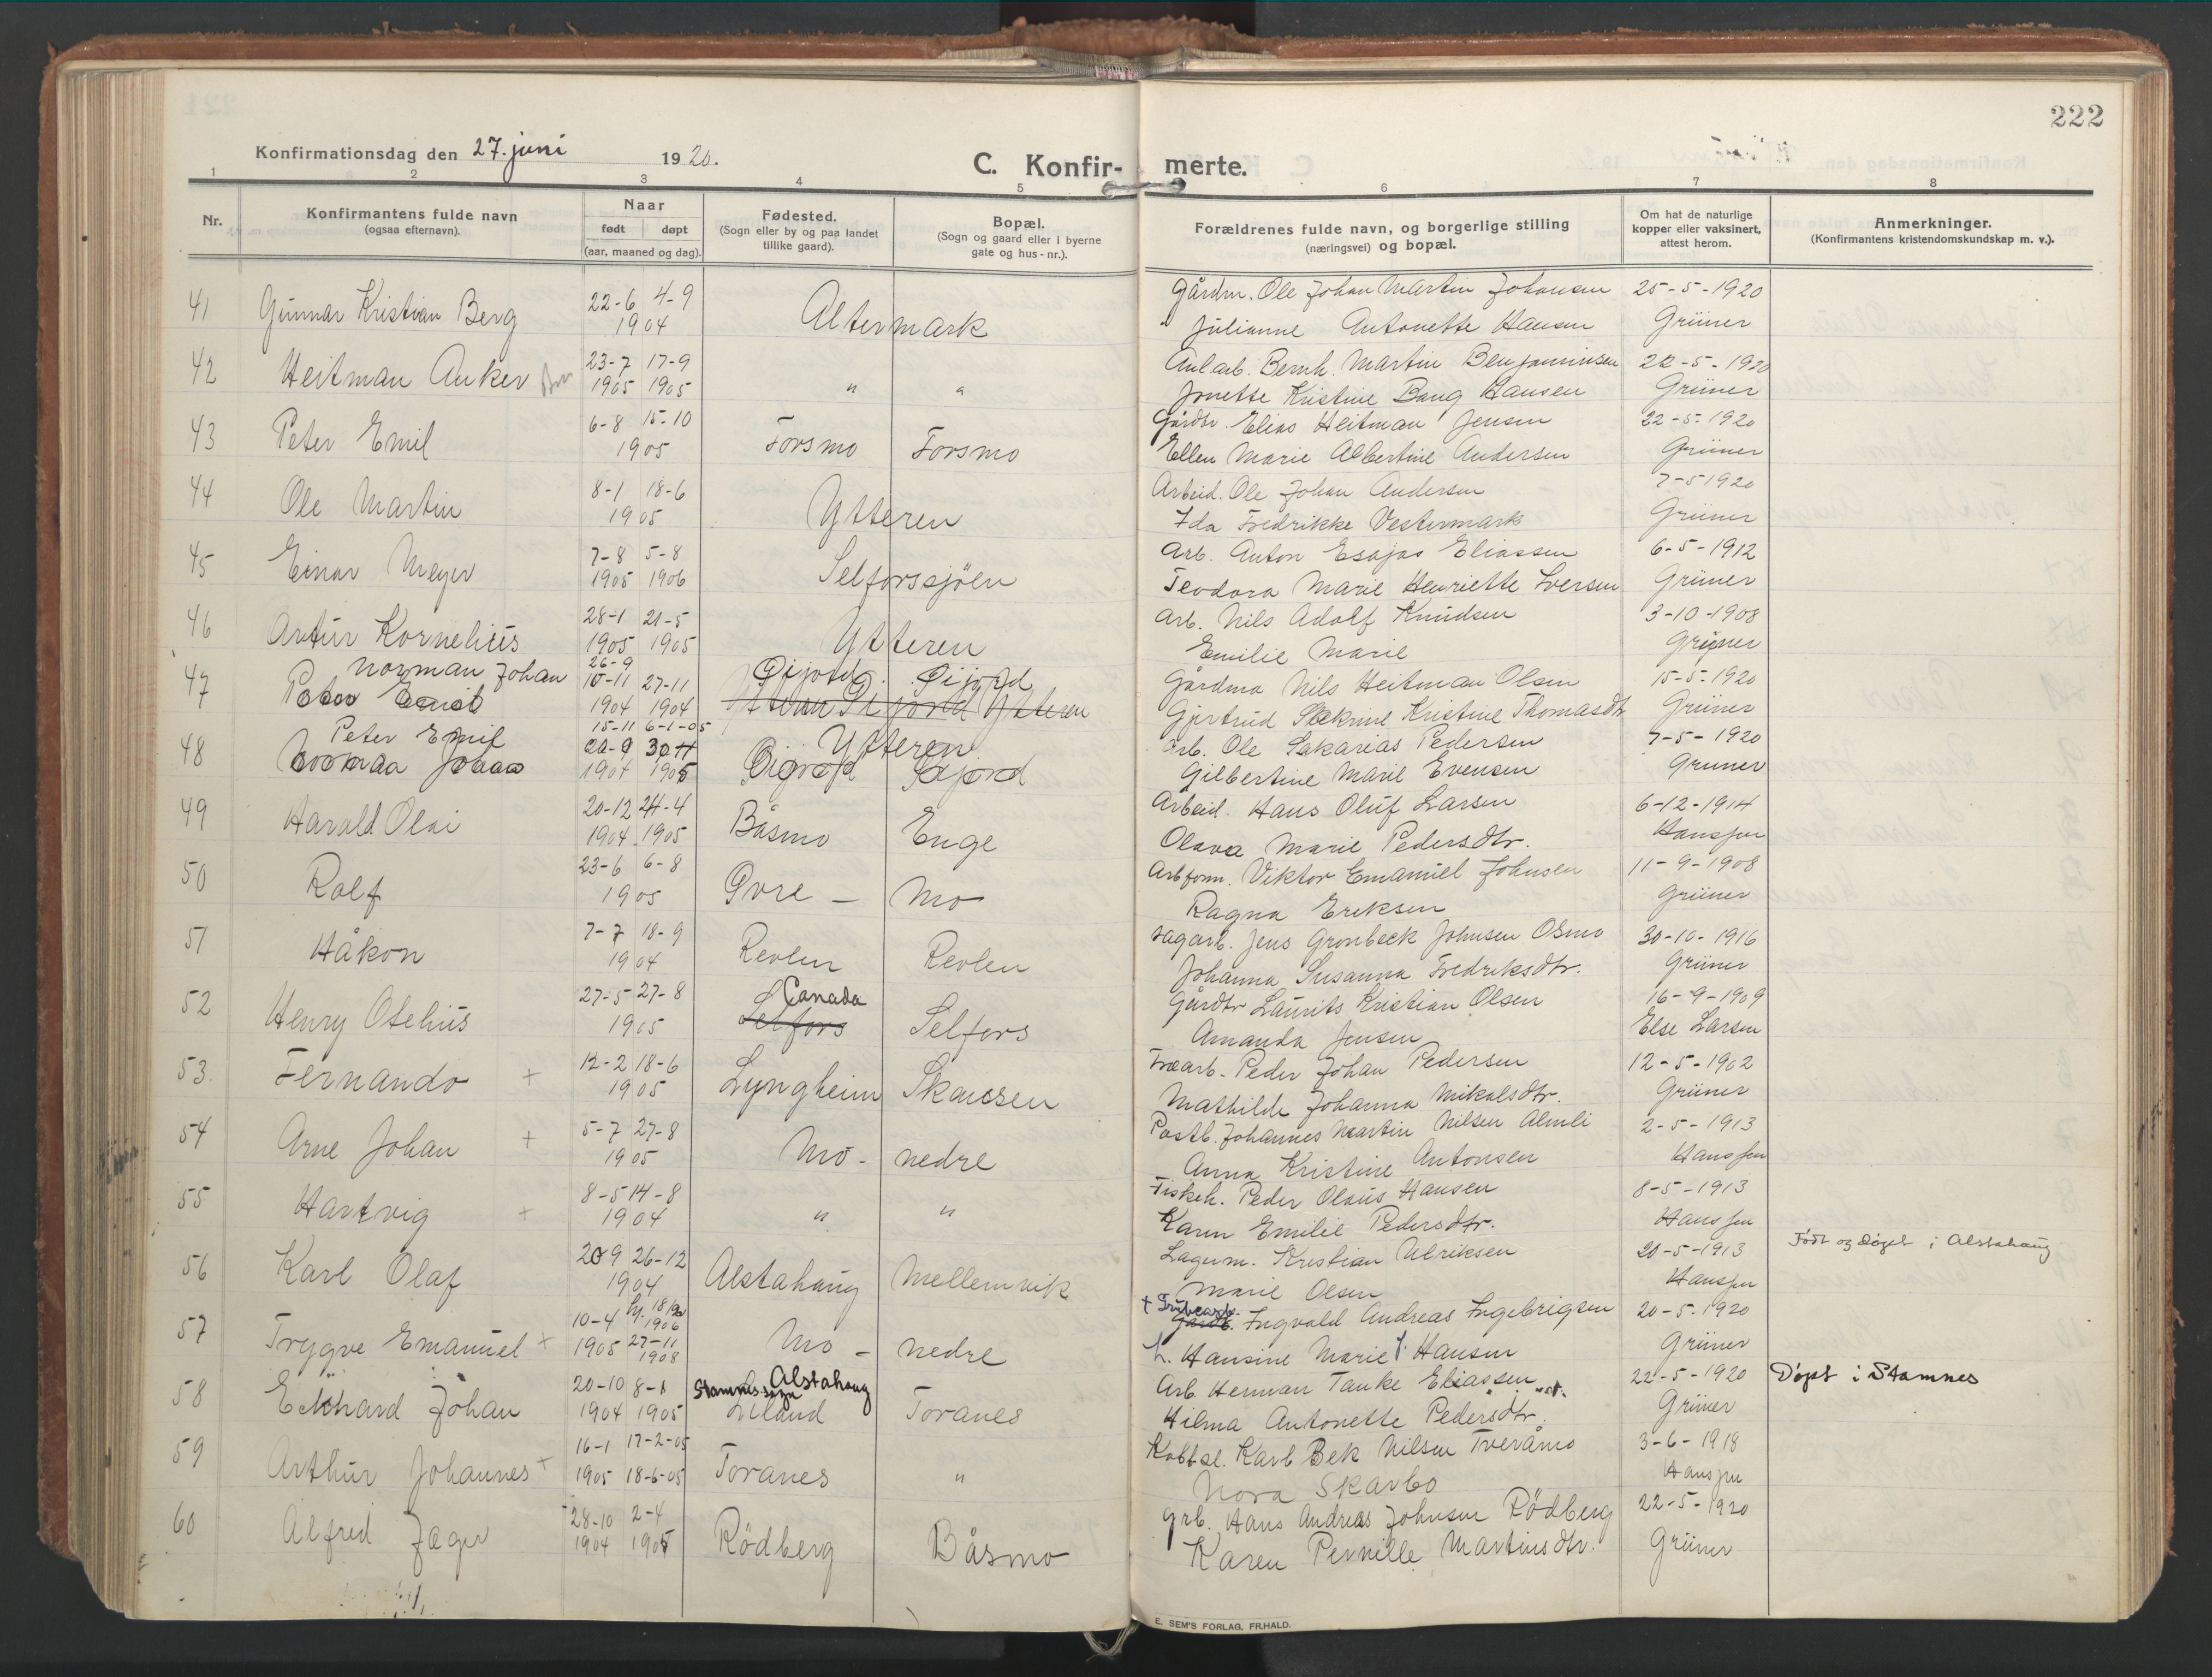 222
Konfirmationsdag den 27. juni 1920.
C. Konfir- merte.
1 2 3 4 5 6 7 8
Nr.
Konfirmantens fulde navn
(ogsaa efternavn).
Naar
født døpt
(aar, maaned og dag).
Fødested.
(Sogn eller by og paa landet
tillike gaard).
Bopæl.
(Sogn og gaard eller i byerne
gate og hus-nr.).
Forældrenes fulde navn, og borgerlige stilling
(næringsvei) og bopæl.
Om hat de naturlige
kopper eller vaksinert,
attest herom.
Anmerkninger.
(Konfirmantens kristendomskundskap m. v.).
41 Gunnar Kristian Berg 22-6 4-9 1904 Altermark Gårdm. Ole Johan Martin Johansen 25-5-1920
Julianne Antonette Hansen Grüner
42 Heitman Anker 23-7 1905 17-9 1905 " " Anl.arb. Bernh. Martin Benjaminsen 22-5-1920
Jonette Kristine Bang Hansen Grüner
43 Peter Emil 6-8 15-10 1905 Forsmo Forsmo Gårdbr. Elias Heitman Jensen 22-5-1920
Ellen Marie Albertine Andersen Grüner
44 Ole Martin 8-1 18-6 1905 Ytteren Arbeid. Ole Johan Andersen 7-5 1920
Ida Fredrikke Vestermark Grüner
45 Einar Meyer 7-8 1905 5-8 1906 Selforssjöen Arb. Anton Esajas Eliassen 6-5-1912
Teodora Marie Henriette Iversen Grüner
46 Artur Kornelius 28-1 1905 21-5 1905 Ytteren Arb. Nils Adolf Knudsen 3-10-1908
Emilie Marie Grüner
47 Norman Johan 26-9 27-11 1904 1904 Øijord Øijord Gårdma Nils Heitman Olsen 15-5-1920
Peter Emil Ytteren Ytteren Gjertrud Kristine Thomasdtr Grüner
48 Peter Emil 15-11 6-1-05 Ytteren Arb. Ole Sakarias Pedersen 7-5-1920
Johan 1904 1905 Gilbertine Marie Evensen Grüner
49 Harald Olai 20-12 1904 24-4 1905 Båsmo Enge Arbeid. Hans Oluf Larsen 6-12-1914
Olava Marie Pedersdtr. Hanssen
50 Rolf 23-6 6-8 1905 Øvre - Mo Arbform. Viktor Emanuel Johnsen 11-9-1908
Ragna Eriksen Grüner
51 Håkon 7-7 18-9 1904 Revlen Revlen Sagarb. Jens Grønbeck Johnsen Osmo 30-10-1916
Johanna Susanna Fredriksdtr. Grüner
52 Henry Otelius 27-5 27-8 1905 Canada Selfors Selfors Gårdbr Laurits Kristian Olsen 16-9-1909
Amanda Jensen Else Larsen
53. Fernando + 12-2 18-6 1905 Lyngheim Skansen Træarb. Peder Johan Pedersen 12-5-1902
Mathilde Johanna Mikalsdtr. Grüner
54 Arne Johan + 5-7 27-8 1905 Mo - nedre Postb. Johannes Martin Nilsen Almli 2-5-1913
Anna Kristine Antonsen Hanssen
55 Hartvig + 8-5 14-8 1904 " " Fiskeh. Peder Olaus Hansen 8-5-1913
Karen Emilie Pedersdtr. Hanssen
56 Karl Olaf 20-9 26-12 1904 Alstahaug Mellemvik Lagerm. Kristian Ulriksen 20-5-1913 Født og døpt i Alstahaug
Marie Olsen Hanssen
57 Trygve Emanuel + 10-4 1905 1906 27-11 1908 Mo - nedre + Ingvald Andreas Ingebrigsen 20-5-1920
h. Hansine Marie Hansen Grüner
58 Eckhard Johan 20-10 1904 8-1 1905 Stamnes sogn Alstahaug Leland Toranes Arb. Herman Tanke Eliassen 22-5-1920 Døpt i Stamnes
Hilma Antonette Pedersdtr. Grüner
59 Arthur Johannes + 16-1 1905 17-2-05 18-6-05 Toranes " Karl Bek Nilsen Tveråmo 3-6-1918
Nora Skavbo Hanssen
60 Alfred Jæger 28-10 1904 2-4 1905 Rödberg Båsmo Grb. Hans Andreas Johnsen Rödberg 22-5-1920
Karen Pernille Martinsdtr. Grüner
E. SEM'S FORLAG, FR.HALD.